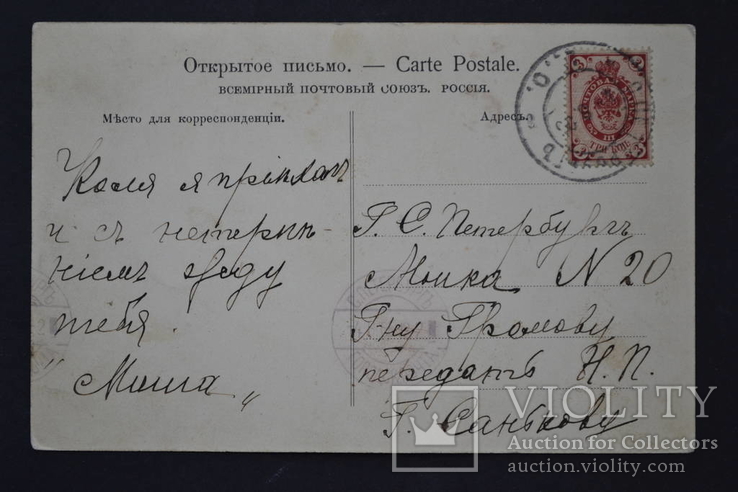 Открытое письмо. — Carte Postale.
ВСЕМІРНЫЙ ПОЧТОВЫЙ СОЮЗЪ. РОССІЯ.
Мѣсто для корреспонденціи.
Адресъ.
Коля я пріѣхал
и съ нетерпѣ-
ніемъ жду
тебя.
„Миша„
Г. С. Петербургъ
Мойка N 20
Г-ну Громову
передать Н. П.
Г. Санькову
VIOLITY
Auction for Collectors
auction.violity.com